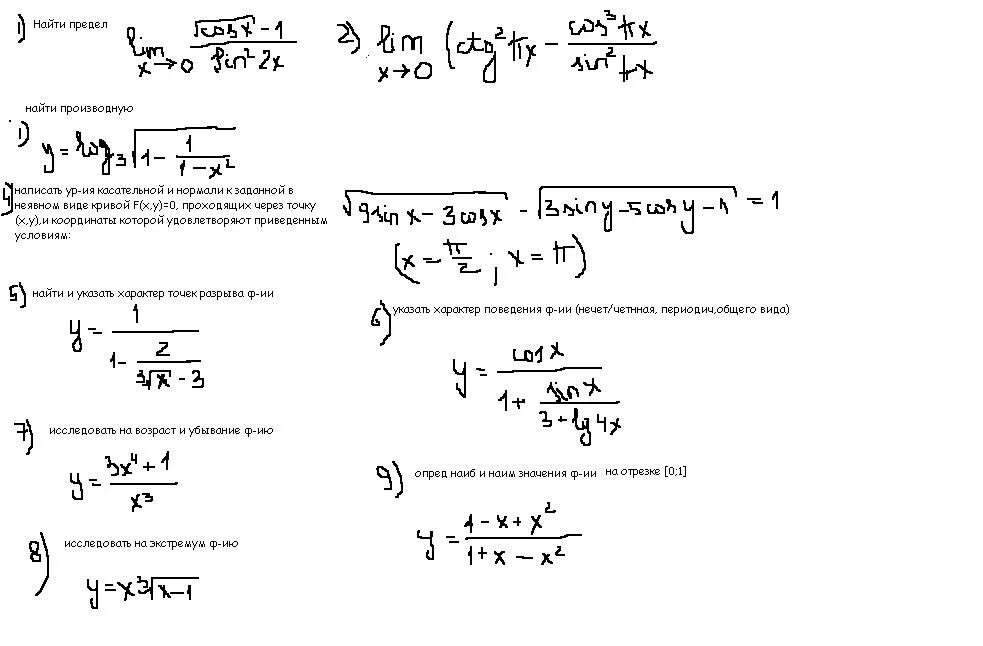 1) Найти предел lim x→0 (√cosx - 1)/(sin² 2x)
2) lim x→0 (ctg² πx - cos³ πx / sin² πx
найти производную
1) y = log₃ √(1 - 1/(1-x²))
4) написать ур-ия касательной и нормали к заданной в
неявном виде кривой F(x,y)=0, проходящих через точку
(x,y),и координаты которой удовлетворяют приведенным
условиям:
√(9sinx - 3cosx) - √(3siny - 5cosy - 1) = 1
(x = π/2 ; x = π)
5) найти и указать характер точек разрыва ф-ии
y = 1/(1 - 2/(³√x - 3))
6) указать характер поведения ф-ии (нечет/четнная, периодич,общего вида)
y = cosx/(1 + sinx/(3 + lg4x))
7) исследовать на возраст и убывание ф-ию
y = (3x⁴ + 1)/x³
9) опред наиб и наим значения ф-ии на отрезке [0;1]
y = (1 - x + x²)/(1 + x - x²)
8) исследовать на экстремум ф-ию
y = x ³√(x-1)